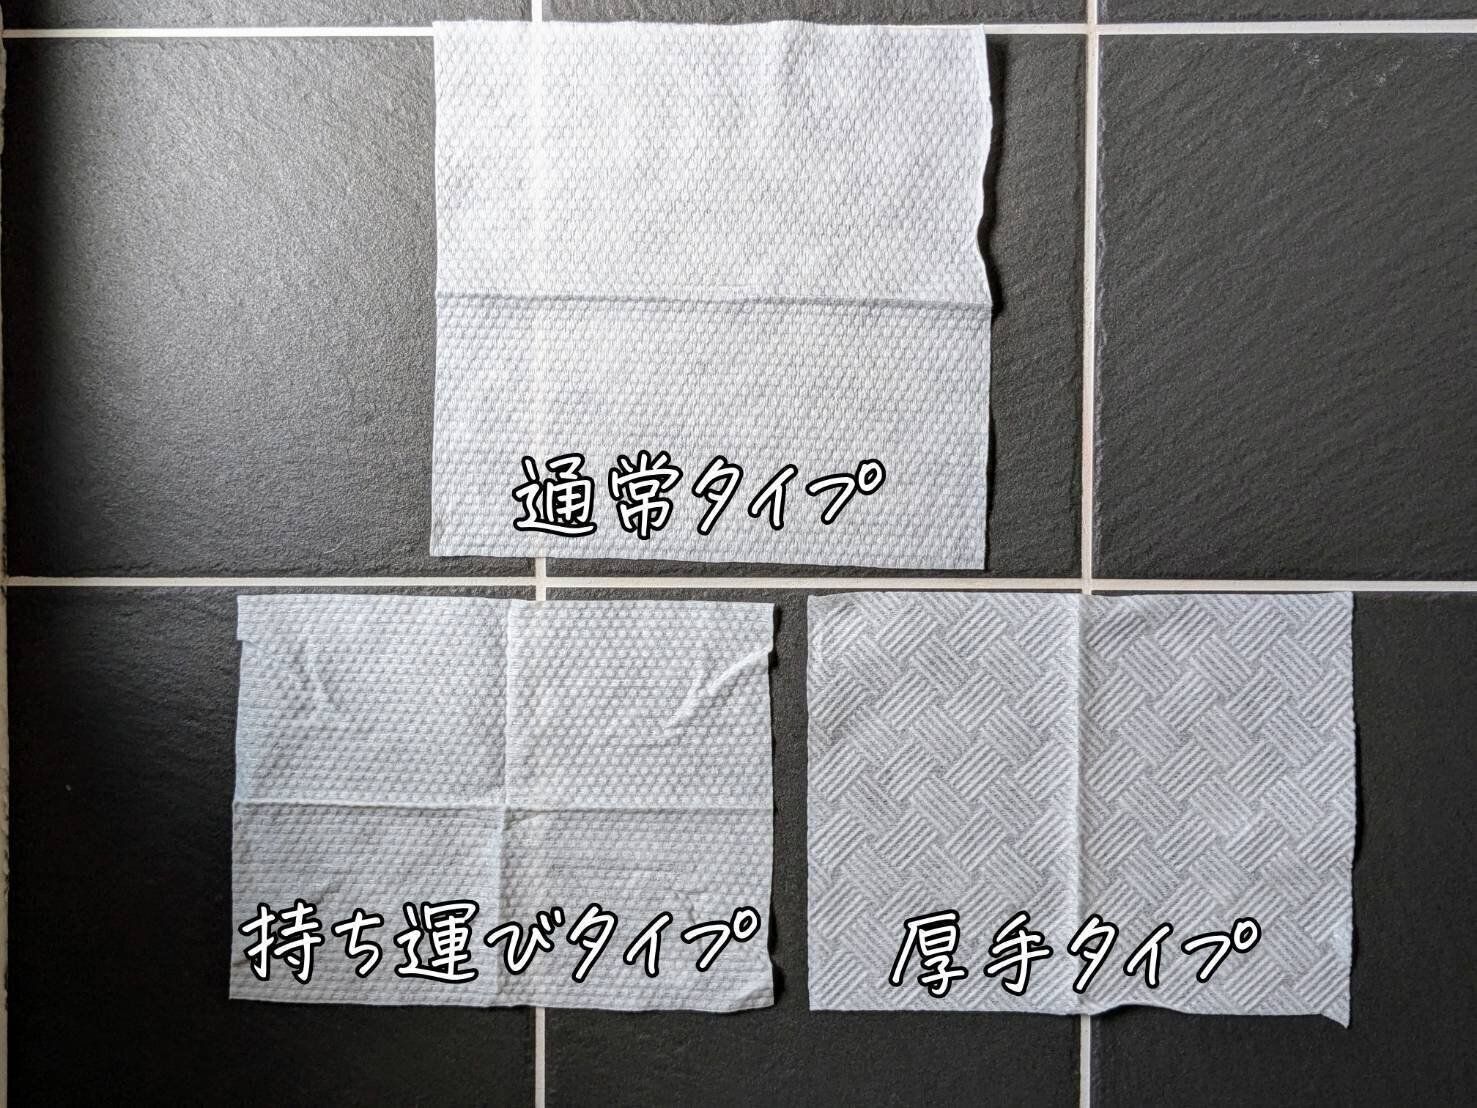 通常タイプ
持ち運びタイプ
厚手タイプ